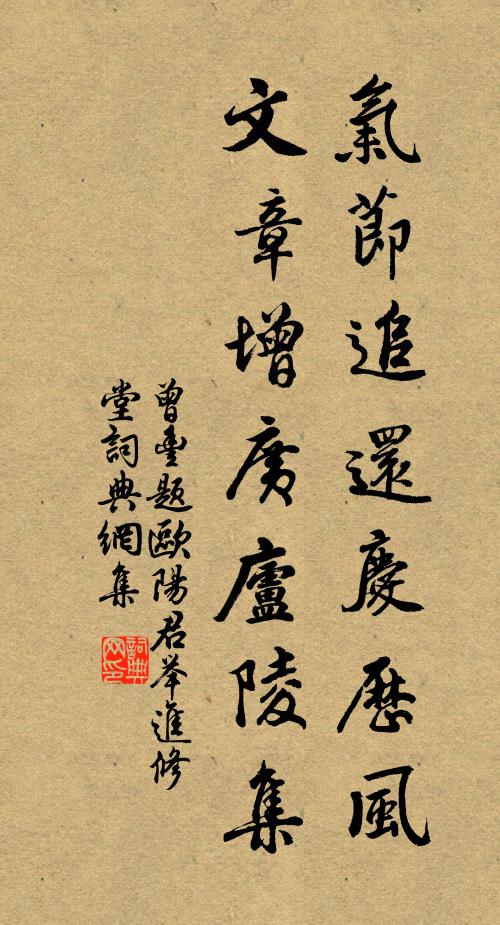 氣節追還慶歷風
文章增廣廬陵集
曾豐題歐陽君舉進修
堂詞典網集
詞典
网印